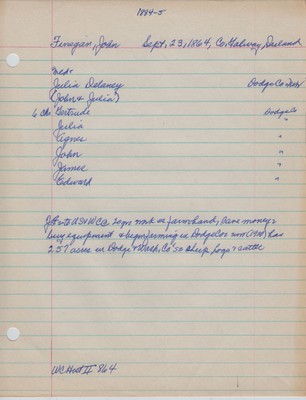 1884-5
Finegan, John Sept. 23, 1864, Co. Galway, Ireland
Med:
Julia Delaney Dodge Co. Neb
(John & Julia)
6 Ch: Gertrude Dodge Co
Julia "
Agnes "
John "
James "
Edward "
to USA & WC @ 20 yrs work as farm hand, save money &
buy equipment & begin farming in Dodge Co now (1911) has
257 acres in Dodge & Wash. Co's sheep hogs & cattle
WC Hist II 864